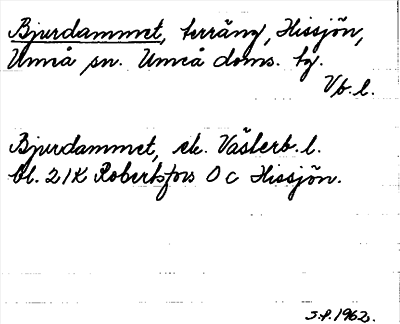 Bjurdammet, terräng, Hissjön,
Umeå sn. Umeå doms. tg.
Vb. l.
Bjurdammet, ek. Västerb. l.
bl. 21K Robertsfors 0 c Hissjön.
S.f. 1962.